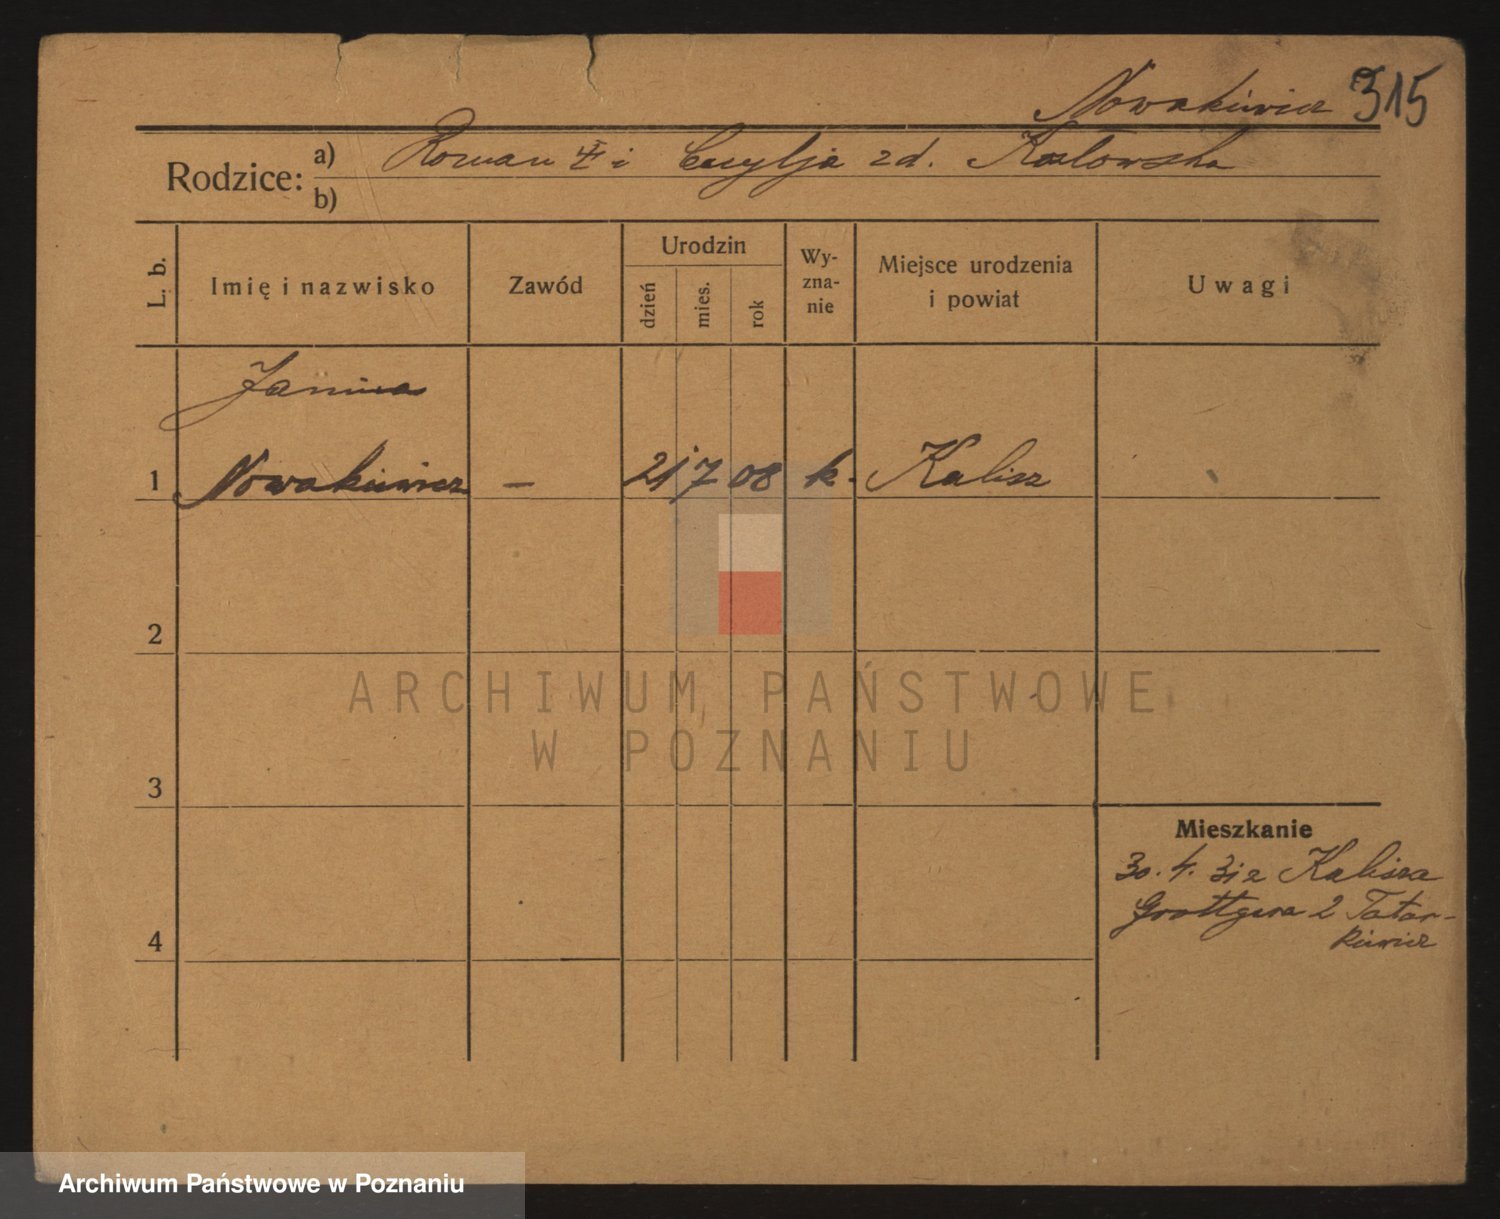 Nowakiewicz 315
Rodzice: a) Roman ‡ i Cecylja zd. Kozłowska
b)
L. b.
Imię i nazwisko
Zawód
Urodzin
dzień
mies.
rok
Wy-
zna-
nie
Miejsce urodzenia
i powiat
Uwagi
Janina
1 Nowakiewicz – 21 7 08 k. Kalisz
2
3
4
Mieszkanie
30. 4. 31 z Kalisza
Grottgera 2 Tatar-
kiewicz
ARCHIWUM PAŃSTWOWE
W POZNANIU
Archiwum Państwowe w Poznaniu